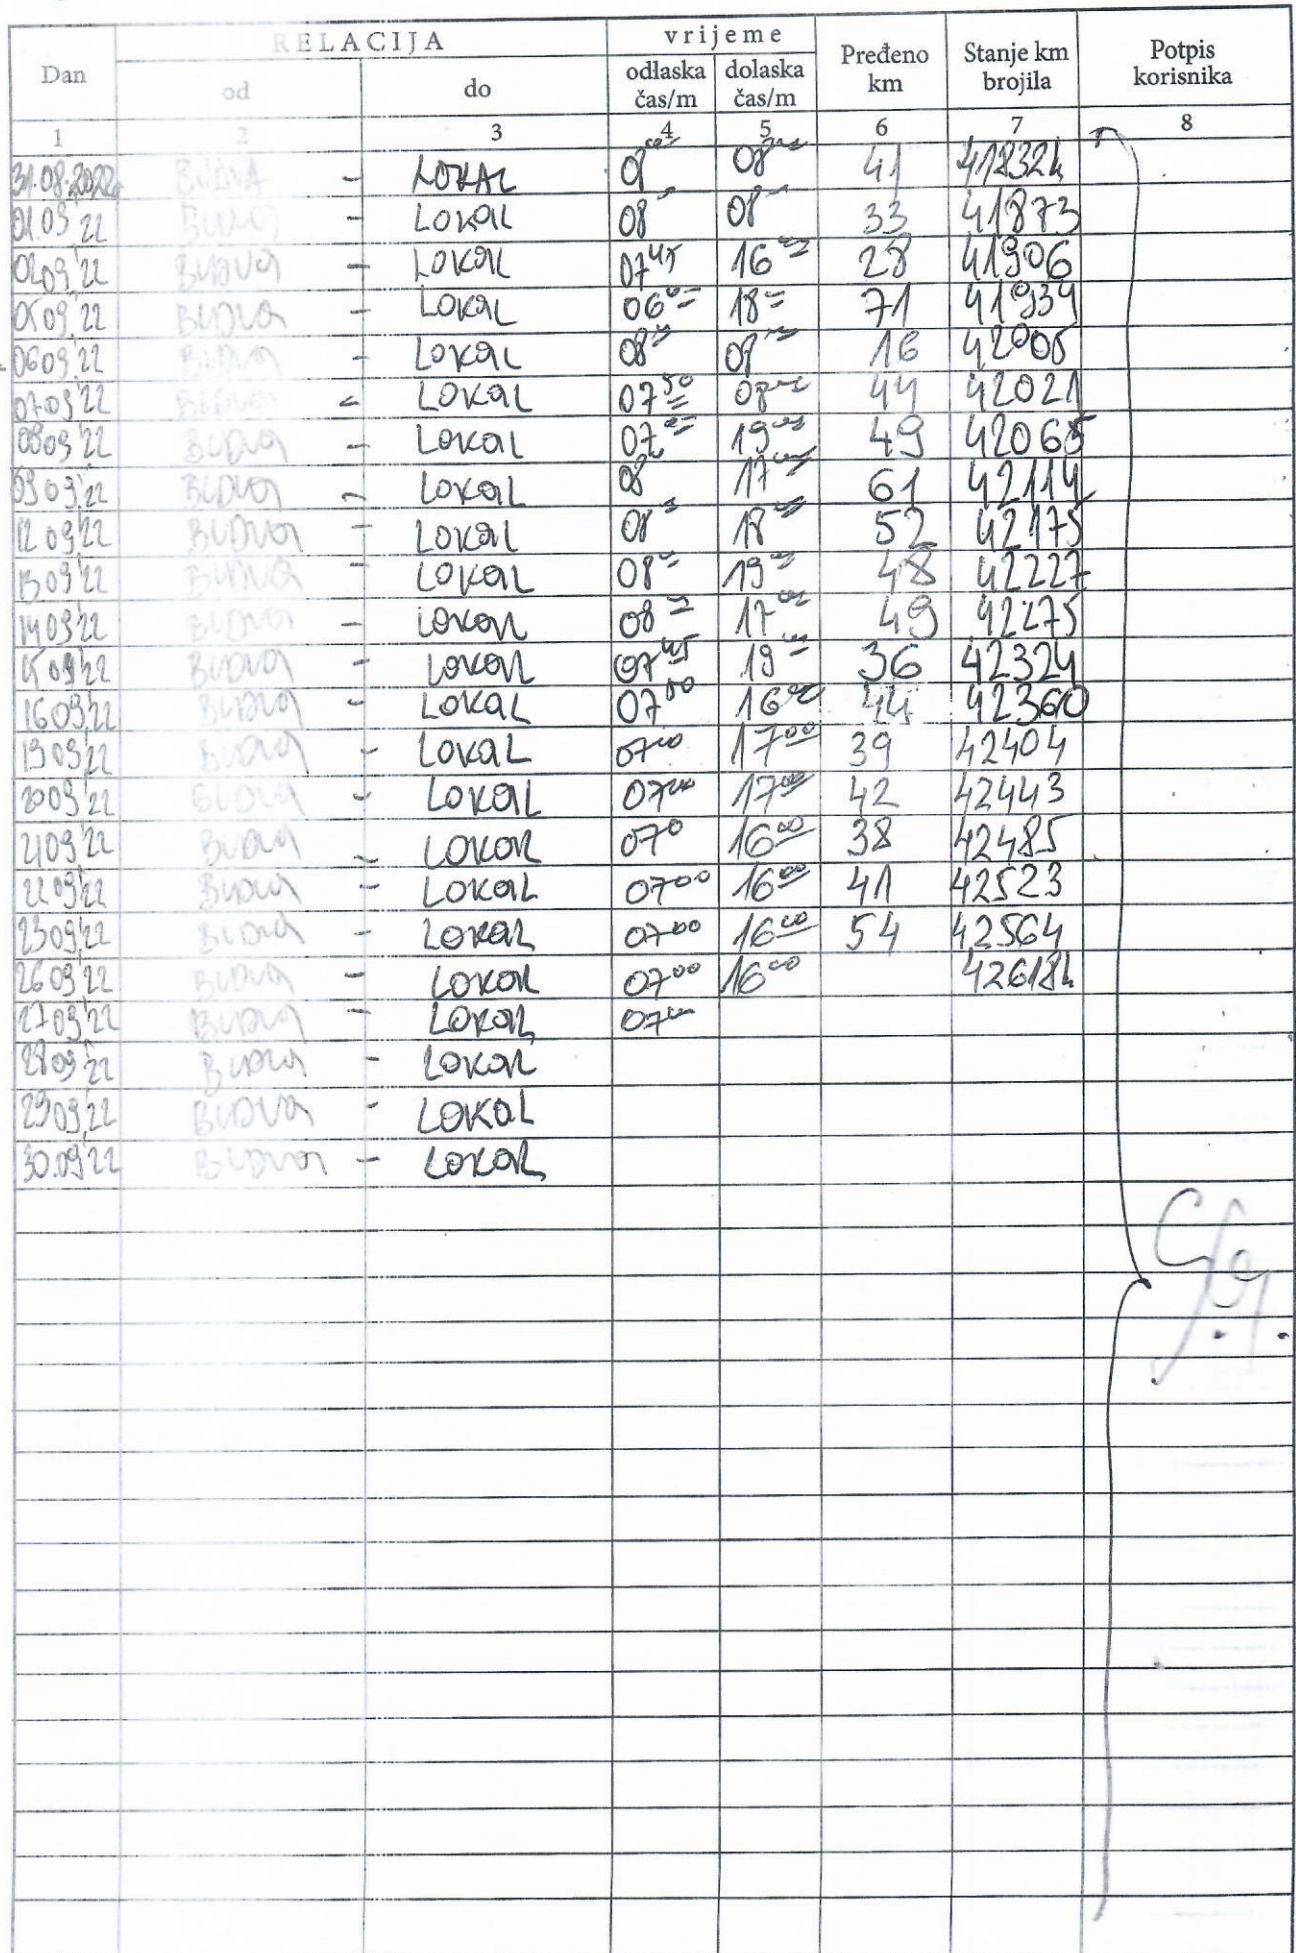 Dan RELACIJA vrijeme Pređeno km Stanje km brojila Potpis korisnika
od do odlaska čas/m dolaska čas/m
1 2 3 4 5 6 7 8
31.08.2022. BUDVA - LOKAL 08 08 41
01.09'22 Budva - LOKAL 08 08 33 41873
02.09'22 Budva - LOKAL 07 45 16 00 28 41906
05 09'22 BUDVA - LOKAL 06 00 18 00 71 41934
06 09'22 BUDVA - LOKAL 08 00 08 00 16 42005
07.09'22 BUDVA - LOKAL 07 50 08 00 44 42021
08 09'22 BUDVA - LOKAL 07 00 19 00 49 42065
09 09'22 BUDVA - LOKAL 08 17 00 61 42114
12 09'22 BUDVA - LOKAL 08 00 18 00 52 42175
13 09'22 BUDVA - LOKAL 08 00 19 00 48 42227
14 09'22 BUDVA - LOKAL 08 00 17 00 49 42275
15 09'22 BUDVA - LOKAL 07 45 19 00 36 42324
16 09'22 BUDVA - LOKAL 07 00 16 00 44 42360
19 09'22 BUDVA - LOKAL 07 00 17 00 39 42404
20 09'22 BUDVA - LOKAL 07 00 17 00 42 42443
21 09'22 BUDVA - LOKAL 07 0 16 00 38 42485
22 09'22 BUDVA - LOKAL 07 00 16 00 41 42523
23 09'22 BUDVA - LOKAL 07 00 16 00 54 42564
26 09'22 BUDVA - LOKAL 07 00 16 00 42618
27 09'22 BUDVA - LOKAL 07 00
28 09'22 BUDVA - LOKAL
29 09'22 BUDVA - LOKAL
30.09'22 BUDVA - LOKAL